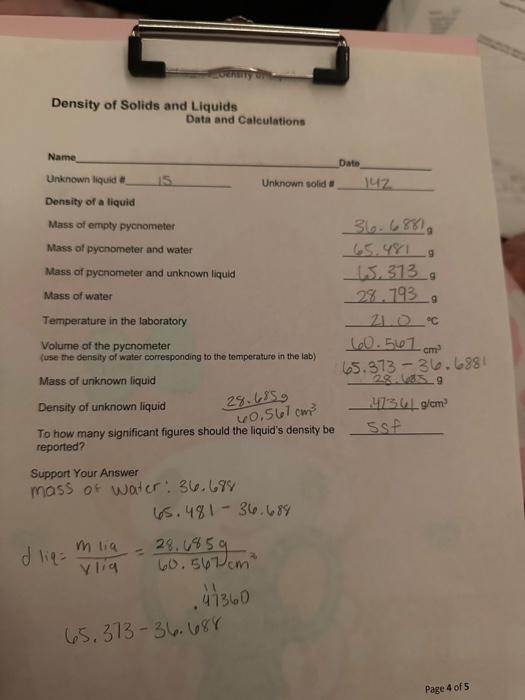 Density of Solids and Liquids
Data and Calculations
Name Date
Unknown liquid # 15 Unknown solid # 142
Density of a liquid
Mass of empty pycnometer 36.6881 g
Mass of pycnometer and water 65.481 g
Mass of pycnometer and unknown liquid 65.373 g
Mass of water 28.793 g
Temperature in the laboratory 21.0 °C
Volume of the pycnometer 60.567 cm³
(use the density of water corresponding to the temperature in the lab)
65.373 - 36.6881
Mass of unknown liquid 28.685 g
Density of unknown liquid 28.685g .47361 g/cm³
60.567 cm³
To how many significant figures should the liquid's density be 5sf
reported?
Support Your Answer
mass of water: 36.688
65.481 - 36.688
d liq = m liq = 28.685g
v liq 60.567 cm³
"
.47360
65.373 - 36.688
Page 4 of 5